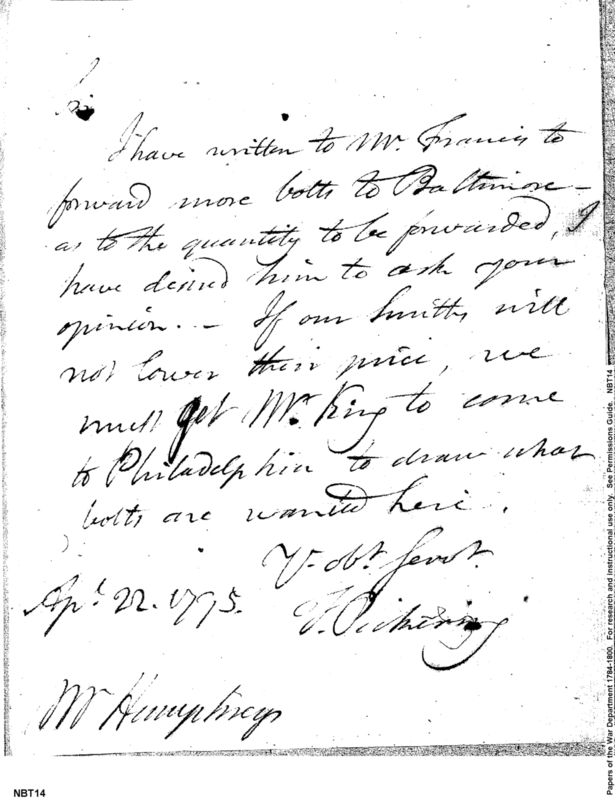 Sir
I have written to Mr. Francis to
forward more bolts to Baltimore –
as to the quantity to be forwarded, I
have desired him to ask your
opinion. – If our smiths will
not lower their price, we
must get Mr. King to come
to Philadelphia to draw what
bolts are wanted here.
Y. obt. servt.
Apl. 22. 1795.
T. Pickering
Mr Humphreys
NBT14
Papers of the War Department 1784-1800. For research and instructional use only. See Permissions Guide. NBT14